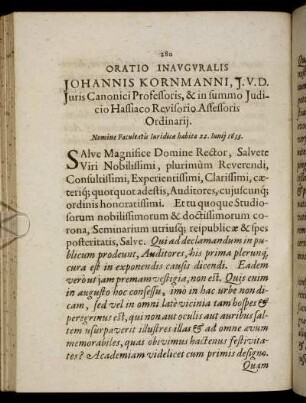 280
ORATIO INAVGVRALIS
JOHANNIS KORNMANNI, J. V. D.
Juris Canonici Professoris, & in summo Judi-
cio Hassiaco Revisorio Assessoris
Ordinarij.
Nomine Facultatis Iuridicæ habita 22. Iunij 1635.
SAlve Magnifice Domine Rector, Salvete
Viri Nobilissimi, plurimùm Reverendi,
Consultissimi, Experientissimi, Clarissimi, cæ-
teriq; quotquot adestis, Auditores, cujuscunq;
ordinis honoratissimi. Et tu quoque Studio-
sorum nobilissimorum & doctissimorum co-
rona, Seminarium utriusq; reipublicæ & spes
posteritatis, Salve. Qui ad declamandum in pu-
blicum prodeunt, Auditores, his prima plerunq;
cura est in exponendis causis dicendi. Eadem
verò ut jam premam vestigia, non est. Quis enim
in augusto hoc consessu, imò in hac urbe non di-
cam, sed vel in omni latè vicinia tam hospes &
peregrinus est, qui non aut oculis aut auribus sal-
tem usurpaverit illustres illas & ad omne ævum
memorabiles, quas obivimus hactenus festivita-
tes? Academiam videlicet cum primis designo.
Quam